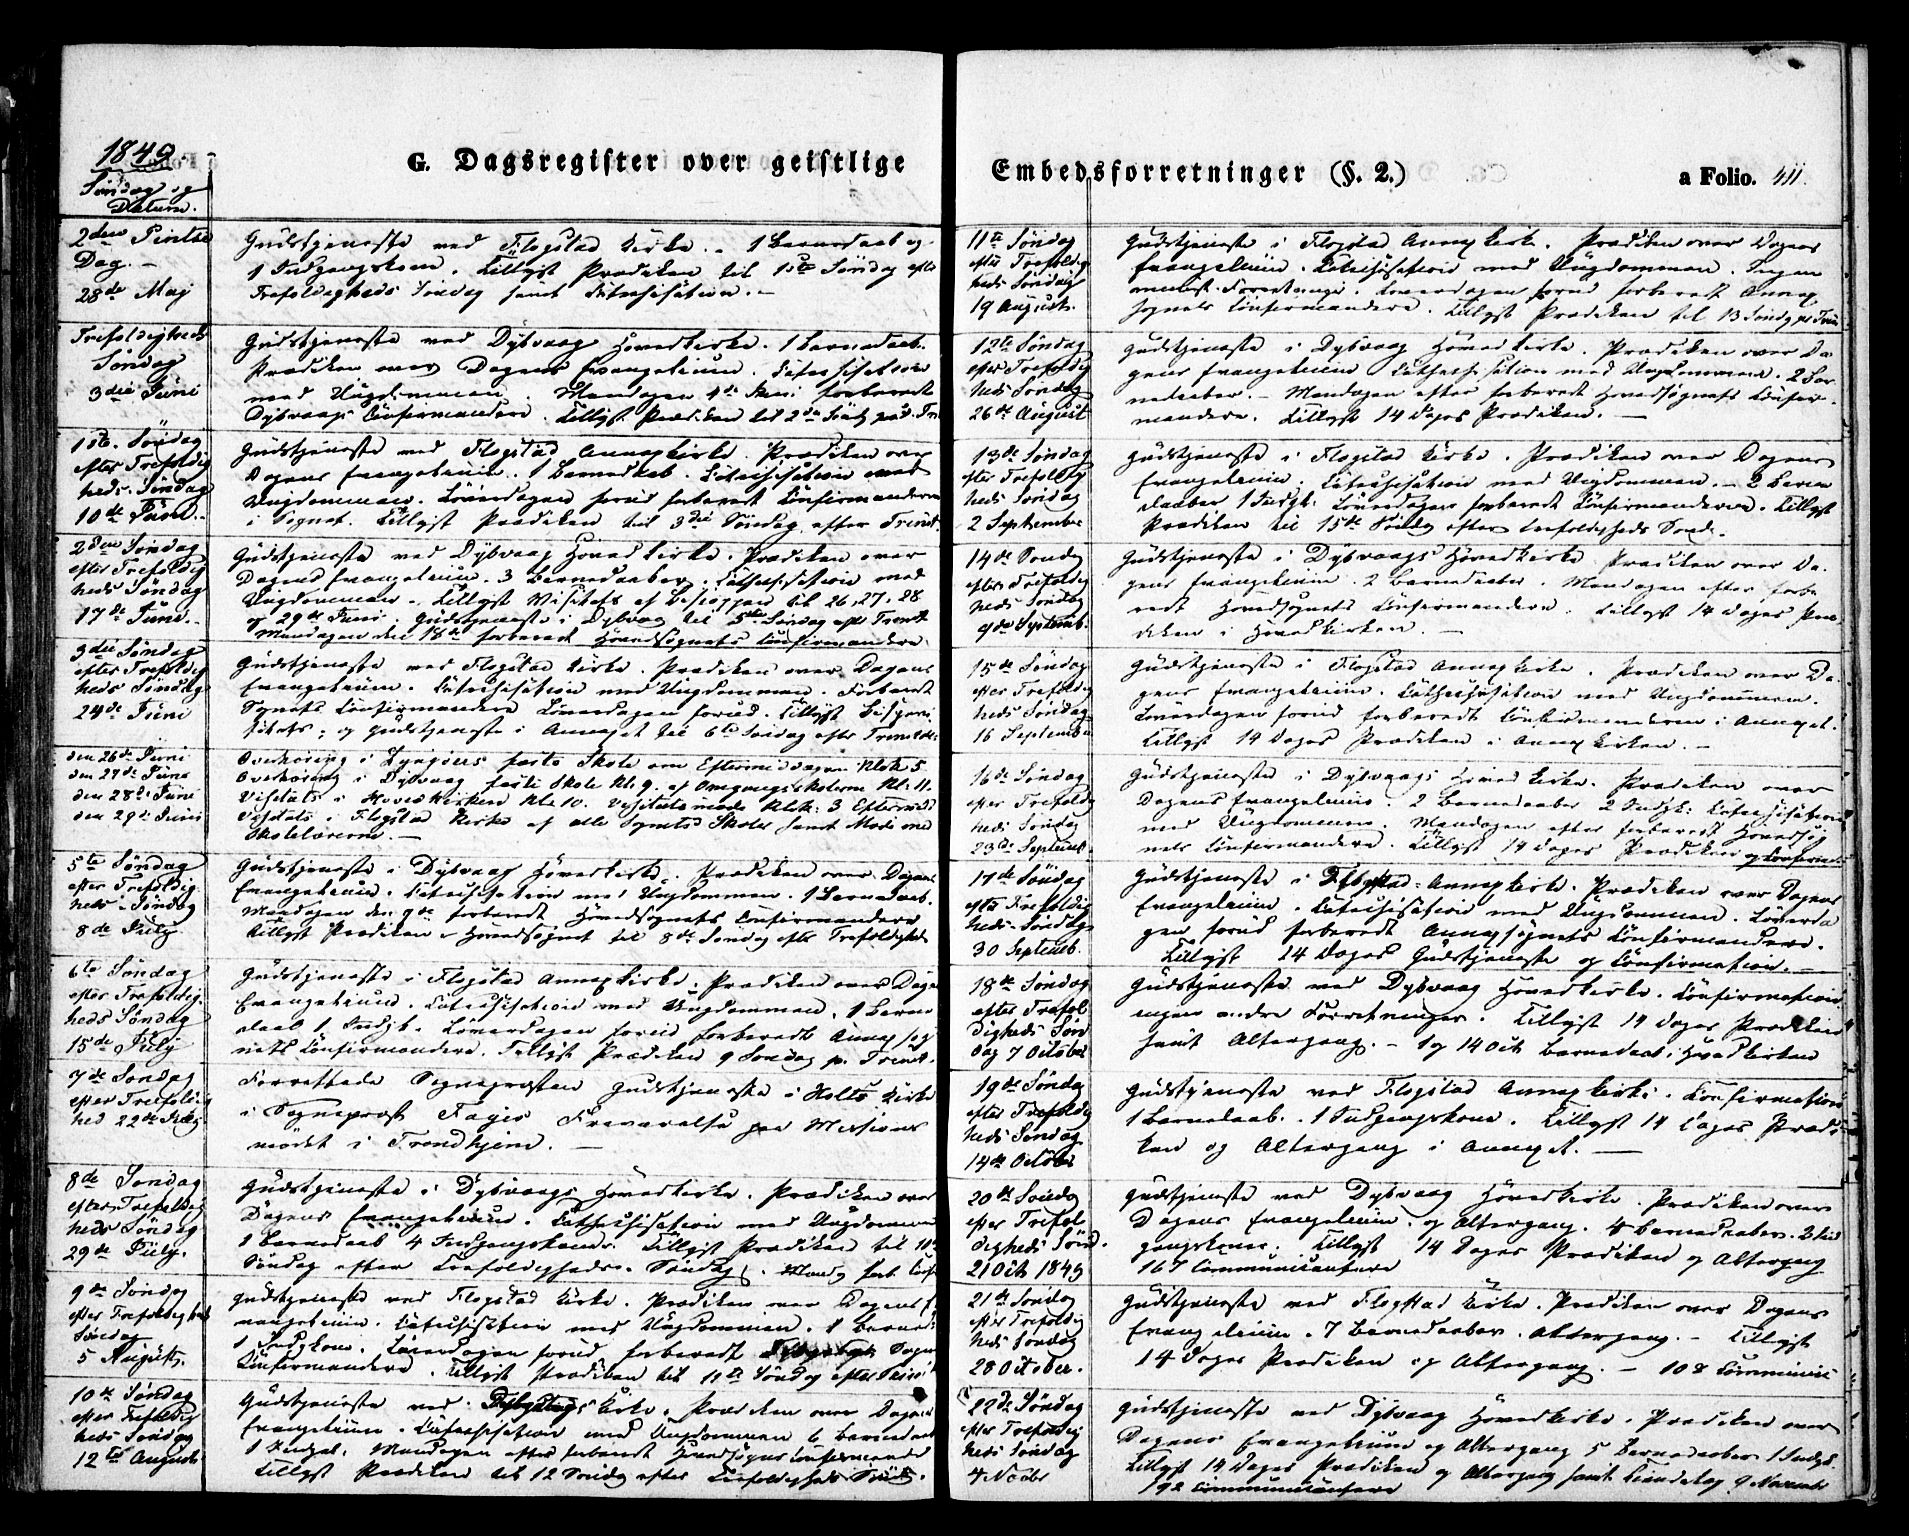 1849.
G. Dagsregister over geistlige
Søndag og
Datum.
2den Pintse
Dag. –
28de Maj
Gudstjeneste ved Flogstad Kirke. – 1 Barnedaab og
1 Indgangskone. Tillyst Prædiken til 1ste Søndag efter
Trefoldigheds Søndag samt Catechisation. –
Trefoldigheds
Søndag
3die Juni
Gudstjeneste ved Dybvaag Hovedkirke. 1 Barnedaab.
Prædiken over Dagens Evangelium. Catechisation
med Ungdommen. Mandagen 4de Juni forberedt
Dybvaags Confirmandere. Tillyst Prædiken til 2den Sønd.
1ste Søndag
efter Trefoldig
heds Søndag
10de Juni. –
Gudstjeneste ved Flogstad Annexkirke. Prædiken over
Dagens Evangelium. 1 Barnedaab. Catechisation med
Ungdommen. Løverdagen forud forberedt Confirmanderne
i Sognet. Tillyst Prædiken til 3die Søndag efter Trinit.
2den Søndag
efter Trefoldig
heds Søndag
17de Juni. –
Gudstjeneste ved Dybvaag Hovedkirke. Prædiken over
Dagens Evangelium. 3 Barnedaaber. Cathechisation med
Ungdommen. Tillyst Visitats af Bispen til 26, 27, 28
og 29de Juni. Gudstjeneste i Dybvaag til 5te Søndag efter Trinit.
Mandagen den 18de forberedt Hovedsognets Confirmandere.
3die Søndag
efter Trefoldig
heds Søndag
24de Juni
Gudstjeneste ved Flogstad Kirke. Prædiken over Dagens
Evangelium. Catechisation med Ungdommen. Forberedt
Sognets Confirmandere Løverdagen forud. Tillyst Bispevi
sitats, og Gudstjeneste i Annexet til 6te Søndag efter Trinit.
den 26de Juni
den 27de Juni
den 28de Juni
den 29de Juni
Overhøring i Lyngøers faste Skole om Eftermiddagen Klok 5.
Overhøring i Dybvaag faste Skole Kl. 9. af Omgangsskolerne Kl. 11.
Visitats i Hovedkirken Kl. 10. Visitatsmøde Klok: 3 Eftermid
Visitats i Flogstad Kirke af alle Sognets Skoler samt Møde med
Skolelærerne. –
5te Søndag
efter Trefoldig
heds – Søndag
8de July
Gudstjeneste i Dybvaag Hovedkirke. Prædiken over Dagens
Evangelium. Catechisation med Ungdommen. 1 Barnedaab.
Mandagen den 9de forberedt Hovedsognets Confirmandere
Tillyst Prædiken i Hovedsognet til 8de Søndag efter Trefoldigheds
6te Søndag
efter Trefoldig
heds Søndag
15de July
Gudstjeneste i Flogstad Annexkirke. Prædiken over Dagens
Evangelium. Catechisation med Ungdommen. 1 Barne
daab 1 Indgk. Løverdagen forud forberedt Annexsog
nets Confirmandere. Tillyst Prædiken 9 Søndag p. Trinit.
7de Søndag
efter Trefoldig
hed 22de July
Forrettede Sognepræsten Gudstjeneste i Holts Kirke
i Sognepræst Fayes Fraværelse paa Missions
mødet i Trondhjem. –
8de Søndag
efter Trefoldig
heds Søndag
29de July.
Gudstjeneste i Dybvaags Hovedkirke. Prædiken over
Dagens Evangelium. Cathechisation med Ungdommen
1 Barnedaab 4 Indgangskoner. Tillyst Prædiken til 10de
Søndag efter Trefoldigheds – Søndag.
9de Søndag
efter Trefoldigheds
Søndag
5 August.
Gudstjeneste ved Flogstad Kirke. Prædiken over Dagens E
vangelium. Catechisation med Ungdommen. 1 Barned:
1 Indgkone. Løverdagen forud forberedt Sognets
Confirmandere. Tillyst Prædiken til 11te Søndag efter Trini
10de Søndag
efter Trefoldig
heds Søndag
12te August
Gudstjeneste ved Dybvaags Kirke. Prædiken over Dagens
Evangelium. Catechisation med Ungdommen 6 Barnedaab
1 Indgk. Mandagen efter forberedt Hovedsognets Confirmander
Tillyst Prædiken til 12 Søndag efter Trefoldigheds Sønd.
Embedsforretninger (§. 2.)
a Folio. 411.
11te Søndag
efter Trefoldig
heds Søndag
19 August.
Gudstjeneste i Flogstad Annexkirke. Prædiken over Dagens
Evangelium. Catechisation med Ungdommen. Ingen
Løverdagen forud forberedt Annex
sognets Confirmandere. Tillyst Prædiken til 13 Søndg p. Trin
12te Søndag
efter Trefoldig
heds Søndag
26de August
Gudstjeneste i Dybvaag Hovedkirke. Prædiken over Da
gens Evangelium Cathechisation med Ungdommen. 2 Bar
nedaaber. – Mandagen efter forberedt Hovedsognets Confir
mandere. Tillyst 14 Dages Prædiken. –
13de Søndag
efter Trefoldig
heds Søndag
2 September
Gudstjeneste i Flogstad Kirke. Prædiken over Dagens
Evangelium. Catechisation med Ungdommen. – 2 Barne
daaber 1 Indgk. Løverdagen forberedt Confirmandere. Tillyst
Prædiken til 15de Søndag efter Trefoldigheds Sønd.
14de Søndag
efter Trefoldig
heds Søndag
9de Septemb.
Gudstjeneste i Dybvaags Hovedkirke Prædiken over Da
gens Evangelium. 2 Barnedaaber. Mandagen efter forbe
redt Hovedsognets Confirmandere. Tillyst 14 Dages Præ
diken i Hovedkirken. –
15de Søndag
efter Trefoldig
heds Søndag
16 September
Gudstjeneste i Flogstad Annexkirke. Prædiken over Da
gens Evangelium. Cathechisation med Ungdommen.
Løverdagen forud forberedt Confirmanderne i Annexet.
Tillyst 14 Dages Prædiken i Annexkirken. –
16de Søndag
efter Trefoldig
heds Søndag
23de Septemb.
Gudstjeneste i Dybvaags Hovedkirke. Prædiken over
Dagens Evangelium. 2 Barnedaaber 2 Indgk: Catechisation
med Ungdommen. Mandagen efter forberedt Hovedsog
nets Confirmandere. Tillyst 14 Dages Prædiken og Confirmat.
17de Søndag
efter Trefoldig
heds – Søndag
30 Septemb.
Gudstjeneste i Flogstad – Annexkirke. Prædiken over Dagens
Evangelium. Catechisation med Ungdommen. Løverda
gen forud forberedt Annexsognets Confirmandere.
Tillyst 14 Dages Gudstjeneste og Confirmation. –
18de Søndag
efter Trefol
digheds Søn
dag 7 October
Gudstjeneste ved Dybvaag Hovedkirke. Confirmation
ingen andre Forretninger. Tillyst 14 Dages Prædiken
samt Altergang. – Og 14 Oct. Barnedaab i Hovedkirken
19de Søndag
efter Trefoldig
heds Søndag
14de October
Gudstjeneste ved Flogstad Annexkirke. Confirmation
1 Barnedaab. 1 Indgangskone. Tillyst 14 Dages Prædi
ken og Altergang i Annexet. –
20de Søndag
efter Trefol
digheds Sønd.
21 Oct. 1849
Gudstjeneste ved Dybvaag Hovedkirke. Prædiken over
Dagens Evangelium. og Altergang. 4 Barnedaaber. 2 Ind
gangskoner. Tillyst 14 Dages Prædiken og Altergang
167 Communicantere
21de Søndag
efter Trefoldig
heds Søndag
28 October.
Gudstjeneste ved Flogstad Kirke. Prædiken over Dagens
Evangelium. 7 Barnedaaber. Altergang. – Tillyst
14 Dages Prædiken og Altergang. – 108 Communic
22de Søndag
efter Trefoldig
heds Søndag
4 Novbr
Gudstjeneste ved Dybvaag Hovedkirke. Prædiken over
Dagens Evangelium og Altergang 5 Barnedaaber 1 Indgk.
Tillyst 14 Dages Prædiken og Altergang samt Takkedag 9 Novemb
192 Communicantere